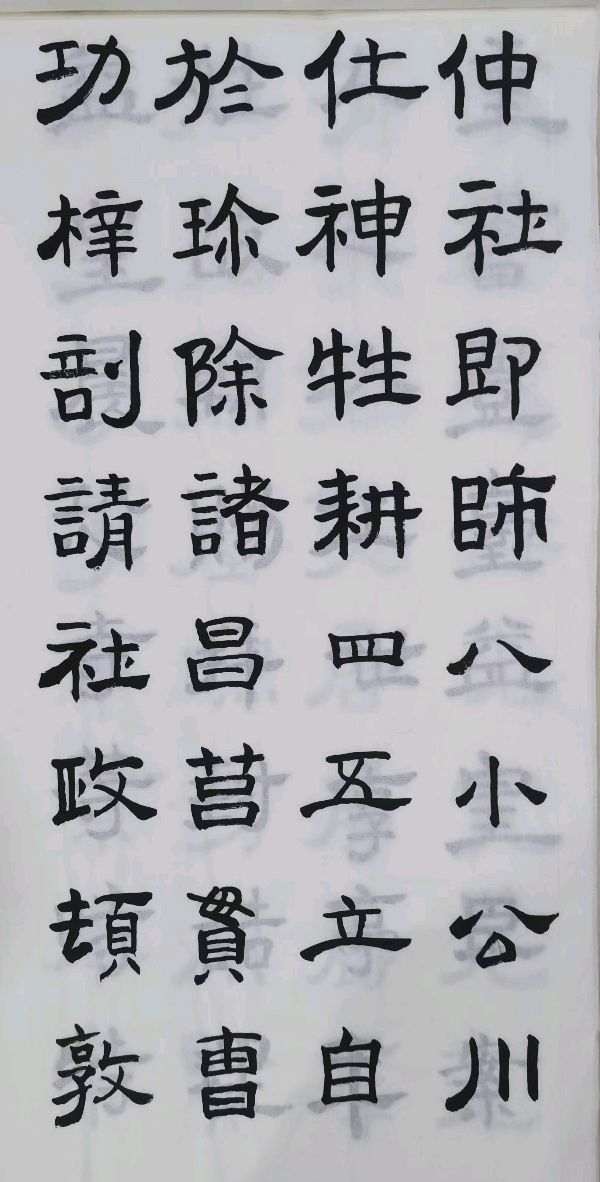 仲社即師八小公川
仕神牲耕四五立自
於珎除諸昌莒貫曹
功梓剖請社政頓敦